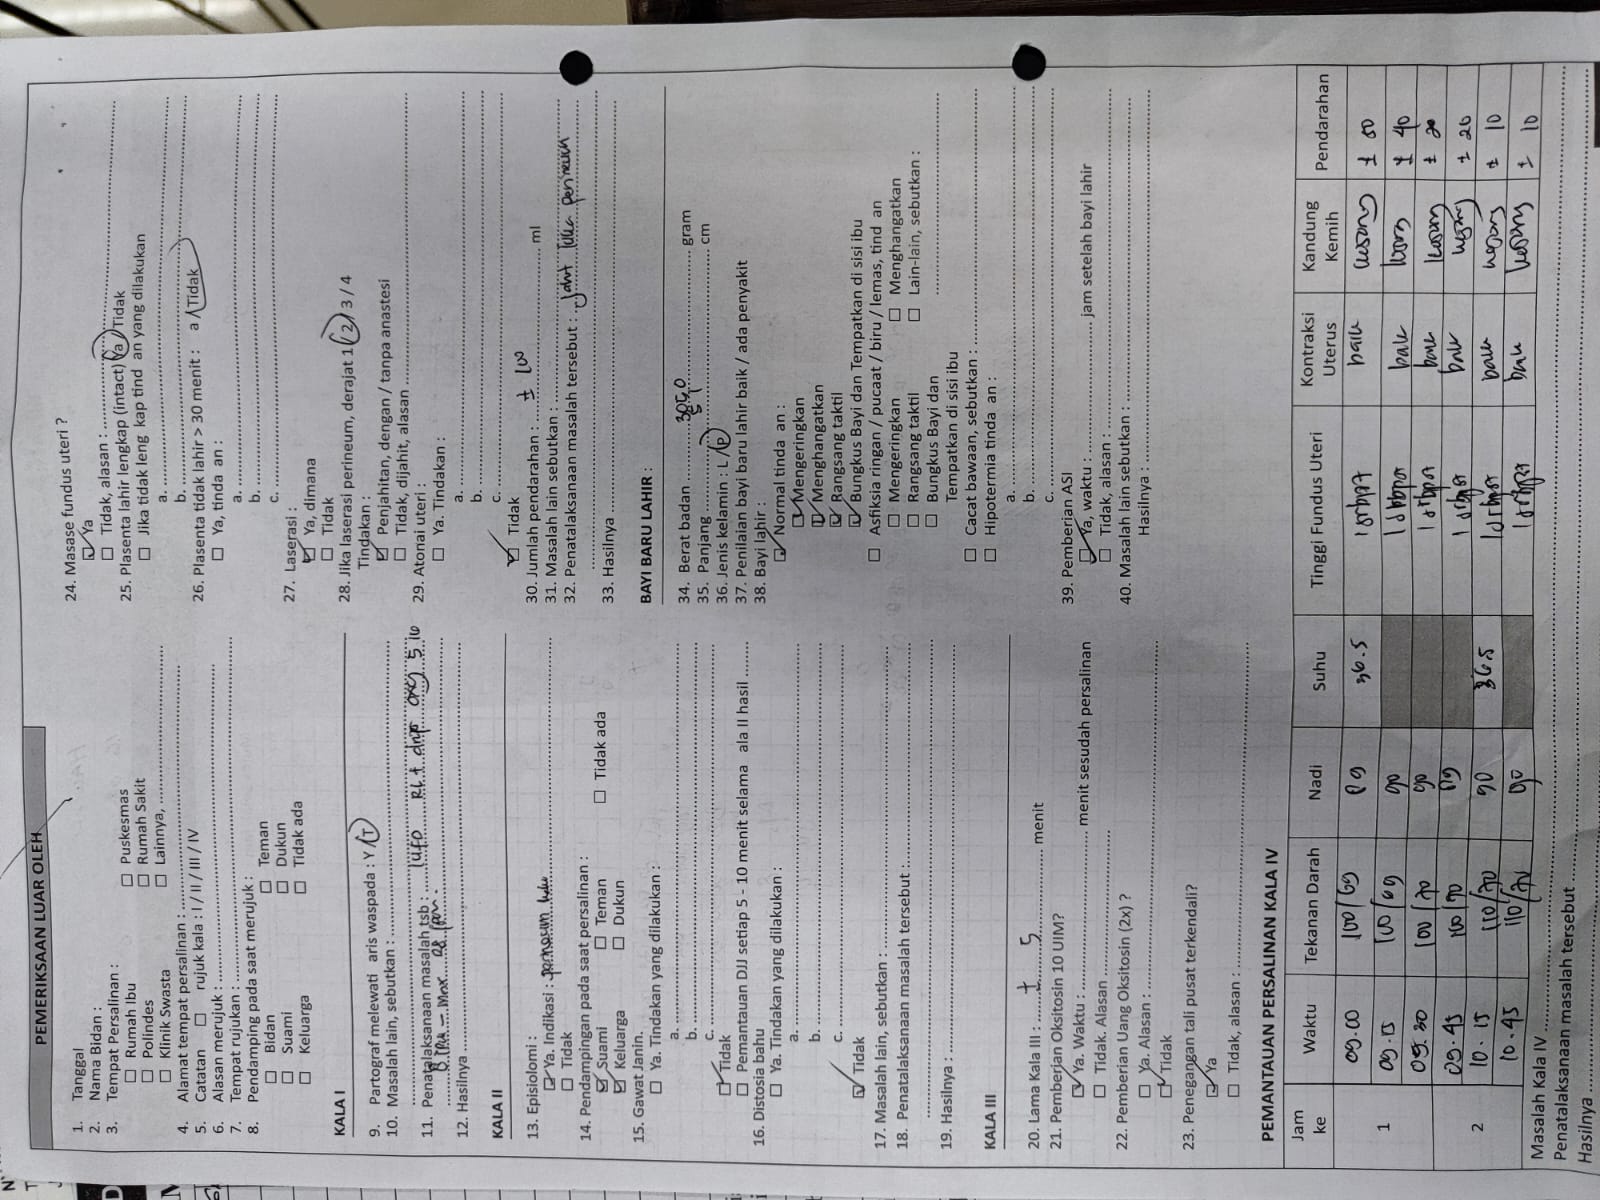 PEMERIKSAAN LUAR OLEH
1. Tanggal
2. Nama Bidan :
3. Tempat Persalinan :
☐ Rumah Ibu ☐ Puskesmas
☐ Polindes ☐ Rumah Sakit
☐ Klinik Swasta ☐ Lainnya,
4. Alamat tempat persalinan :
5. Catatan ☐ rujuk kala : I / II / III / IV
6. Alasan merujuk :
7. Tempat rujukan :
8. Pendamping pada saat merujuk :
☐ Bidan ☐ Teman
☐ Suami ☐ Dukun
☐ Keluarga ☐ Tidak ada
KALA I
9. Partograf melewati aris waspada : Y / T
10. Masalah lain, sebutkan :
11. Penatalaksanaan masalah tsb : drip oxy 5 iu
12. Hasilnya
KALA II
13. Episiolomi :
☑ Ya. Indikasi :
☐ Tidak
14. Pendampingan pada saat persalinan :
☑ Suami ☐ Teman ☐ Tidak ada
☑ Keluarga ☐ Dukun
15. Gawat Janin.
☐ Ya. Tindakan yang dilakukan :
a.
b.
c.
☑ Tidak
☐ Pemantauan DJJ setiap 5 - 10 menit selama ala II hasil
16. Distosia bahu
☐ Ya. Tindakan yang dilakukan :
a.
b.
c.
☑ Tidak
17. Masalah lain, sebutkan :
18. Penatalaksanaan masalah tersebut :
19. Hasilnya :
KALA III
20. Lama Kala III : ± 5 menit
21. Pemberian Oksitosin 10 UIM?
☑ Ya. Waktu : menit sesudah persalinan
☐ Tidak. Alasan
22. Pemberian Uang Oksitosin (2x) ?
☐ Ya. Alasan :
☑ Tidak
23. Penegangan tali pusat terkendali?
☑ Ya
☐ Tidak, alasan :
24. Masase fundus uteri ?
☑ Ya
☐ Tidak, alasan :
25. Plasenta lahir lengkap (intact) Ya / Tidak
☐ Jika tidak leng kap tind an yang dilakukan
a.
b.
26. Plasenta tidak lahir > 30 menit : a / Tidak
☐ Ya, tinda an :
a.
b.
c.
27. Laserasi :
☑ Ya, dimana
☐ Tidak
28. Jika laserasi perineum, derajat 1 / 2 / 3 / 4
Tindakan :
☑ Penjahitan, dengan / tanpa anastesi
☐ Tidak, dijahit, alasan
29. Atonai uteri :
☐ Ya. Tindakan :
a.
b.
c.
☑ Tidak
30. Jumlah pendarahan : ± 100 ml
31. Masalah lain sebutkan :
32. Penatalaksanaan masalah tersebut : Jahit luka perineum
33. Hasilnya
BAYI BARU LAHIR :
34. Berat badan 3050 gram
35. Panjang cm
36. Jenis kelamin : L / P
37. Penilaian bayi baru lahir baik / ada penyakit
38. Bayi lahir :
☑ Normal tinda an :
☑ Mengeringkan
☑ Menghangatkan
☑ Rangsang taktil
☑ Bungkus Bayi dan Tempatkan di sisi ibu
☐ Asfiksia ringan / pucaat / biru / lemas, tind an
☐ Mengeringkan ☐ Menghangatkan
☐ Rangsang taktil ☐ Lain-lain, sebutkan :
☐ Bungkus Bayi dan
Tempatkan di sisi ibu
☐ Cacat bawaan, sebutkan :
☐ Hipotermia tinda an :
a.
b.
c.
39. Pemberian ASI
☑ Ya, waktu : jam setelah bayi lahir
☐ Tidak, alasan :
40. Masalah lain sebutkan :
Hasilnya :
PEMANTAUAN PERSALINAN KALA IV
Jam ke Waktu Tekanan Darah Nadi Suhu Tinggi Fundus Uteri Kontraksi Uterus Kandung Kemih Pendarahan
1 09.00 100/69 89 36.5 1 jrbpst baik kosong ± 50
09.15 100/69 90 1 jrbpst baik kosong ± 40
09.30 100/70 90 1 jrbpst baik kosong ± 20
2 09.45 100/70 89 1 jrbpst baik kosong ± 20
10.15 110/70 90 36.5 1 jrbpst baik kosong ± 10
10.45 110/70 90 1 jrbpst baik kosong ± 10
Masalah Kala IV
Penatalaksanaan masalah tersebut
Hasilnya